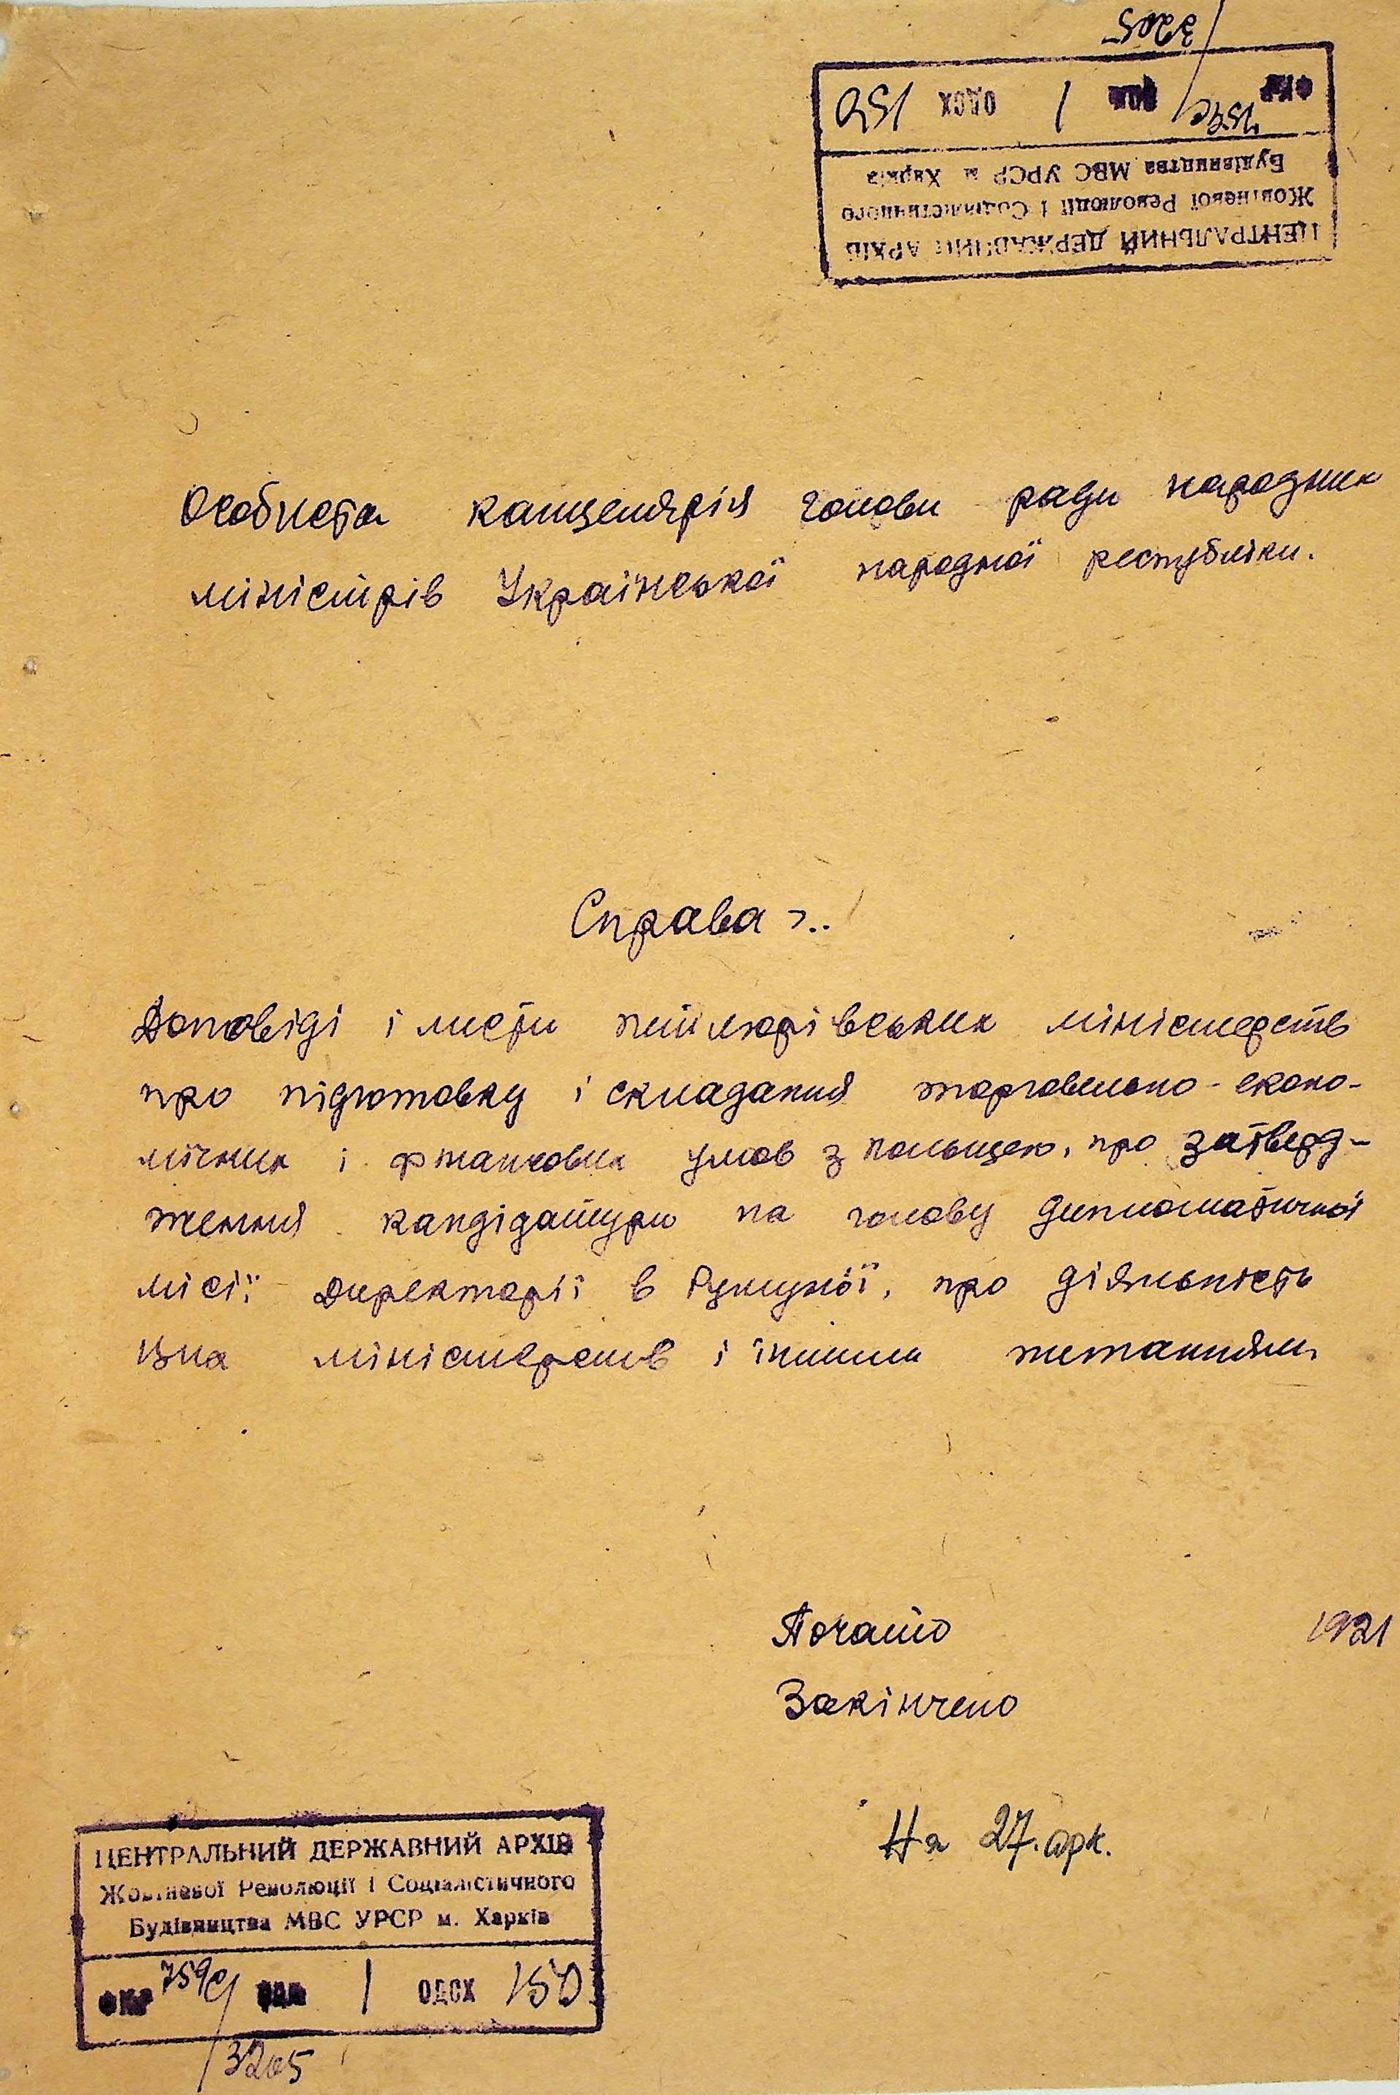 3205
ФКР 759с ОДП 1 ОДСХ 150
Будівництва МВС УРСР м. Харків
Жовтневої Революції і Соціалістичного
ЦЕНТРАЛЬНИЙ ДЕРЖАВНИЙ АРХІВ
Особиста канцелярія голови ради народних
міністрів Української народної республіки.
Справа
Доповіді і листи петлюрівських міністерств
про підготовку і складання торговельно-еконо-
мічних і фінансових умов з Польщею, про затверд-
ження кандідатури на голову дипломатичної
місії Директорії в Румунії, про діяльність
міністерств і іншим питанням
Почато 1921
Закінчено
На 27 арк.
ЦЕНТРАЛЬНИЙ ДЕРЖАВНИЙ АРХІВ
Жовтневої Революції і Соціалістичного
Будівництва МВС УРСР м. Харків
ФКР 759с 1 ОДСХ 150
3205